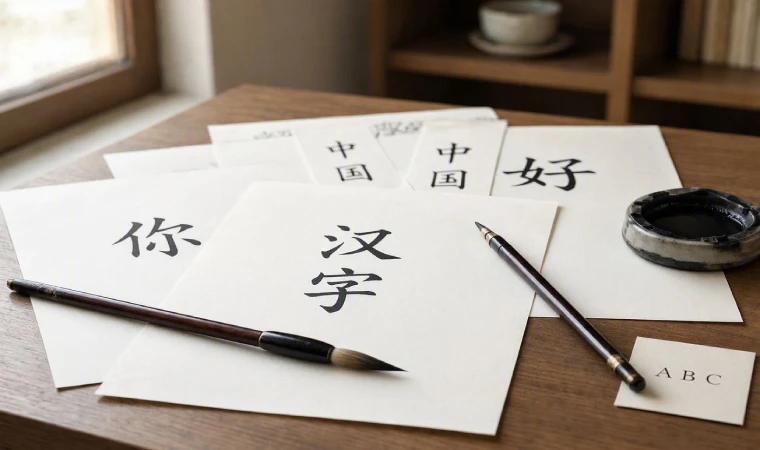 中
国
中
国
好
你
汉
字
A B C